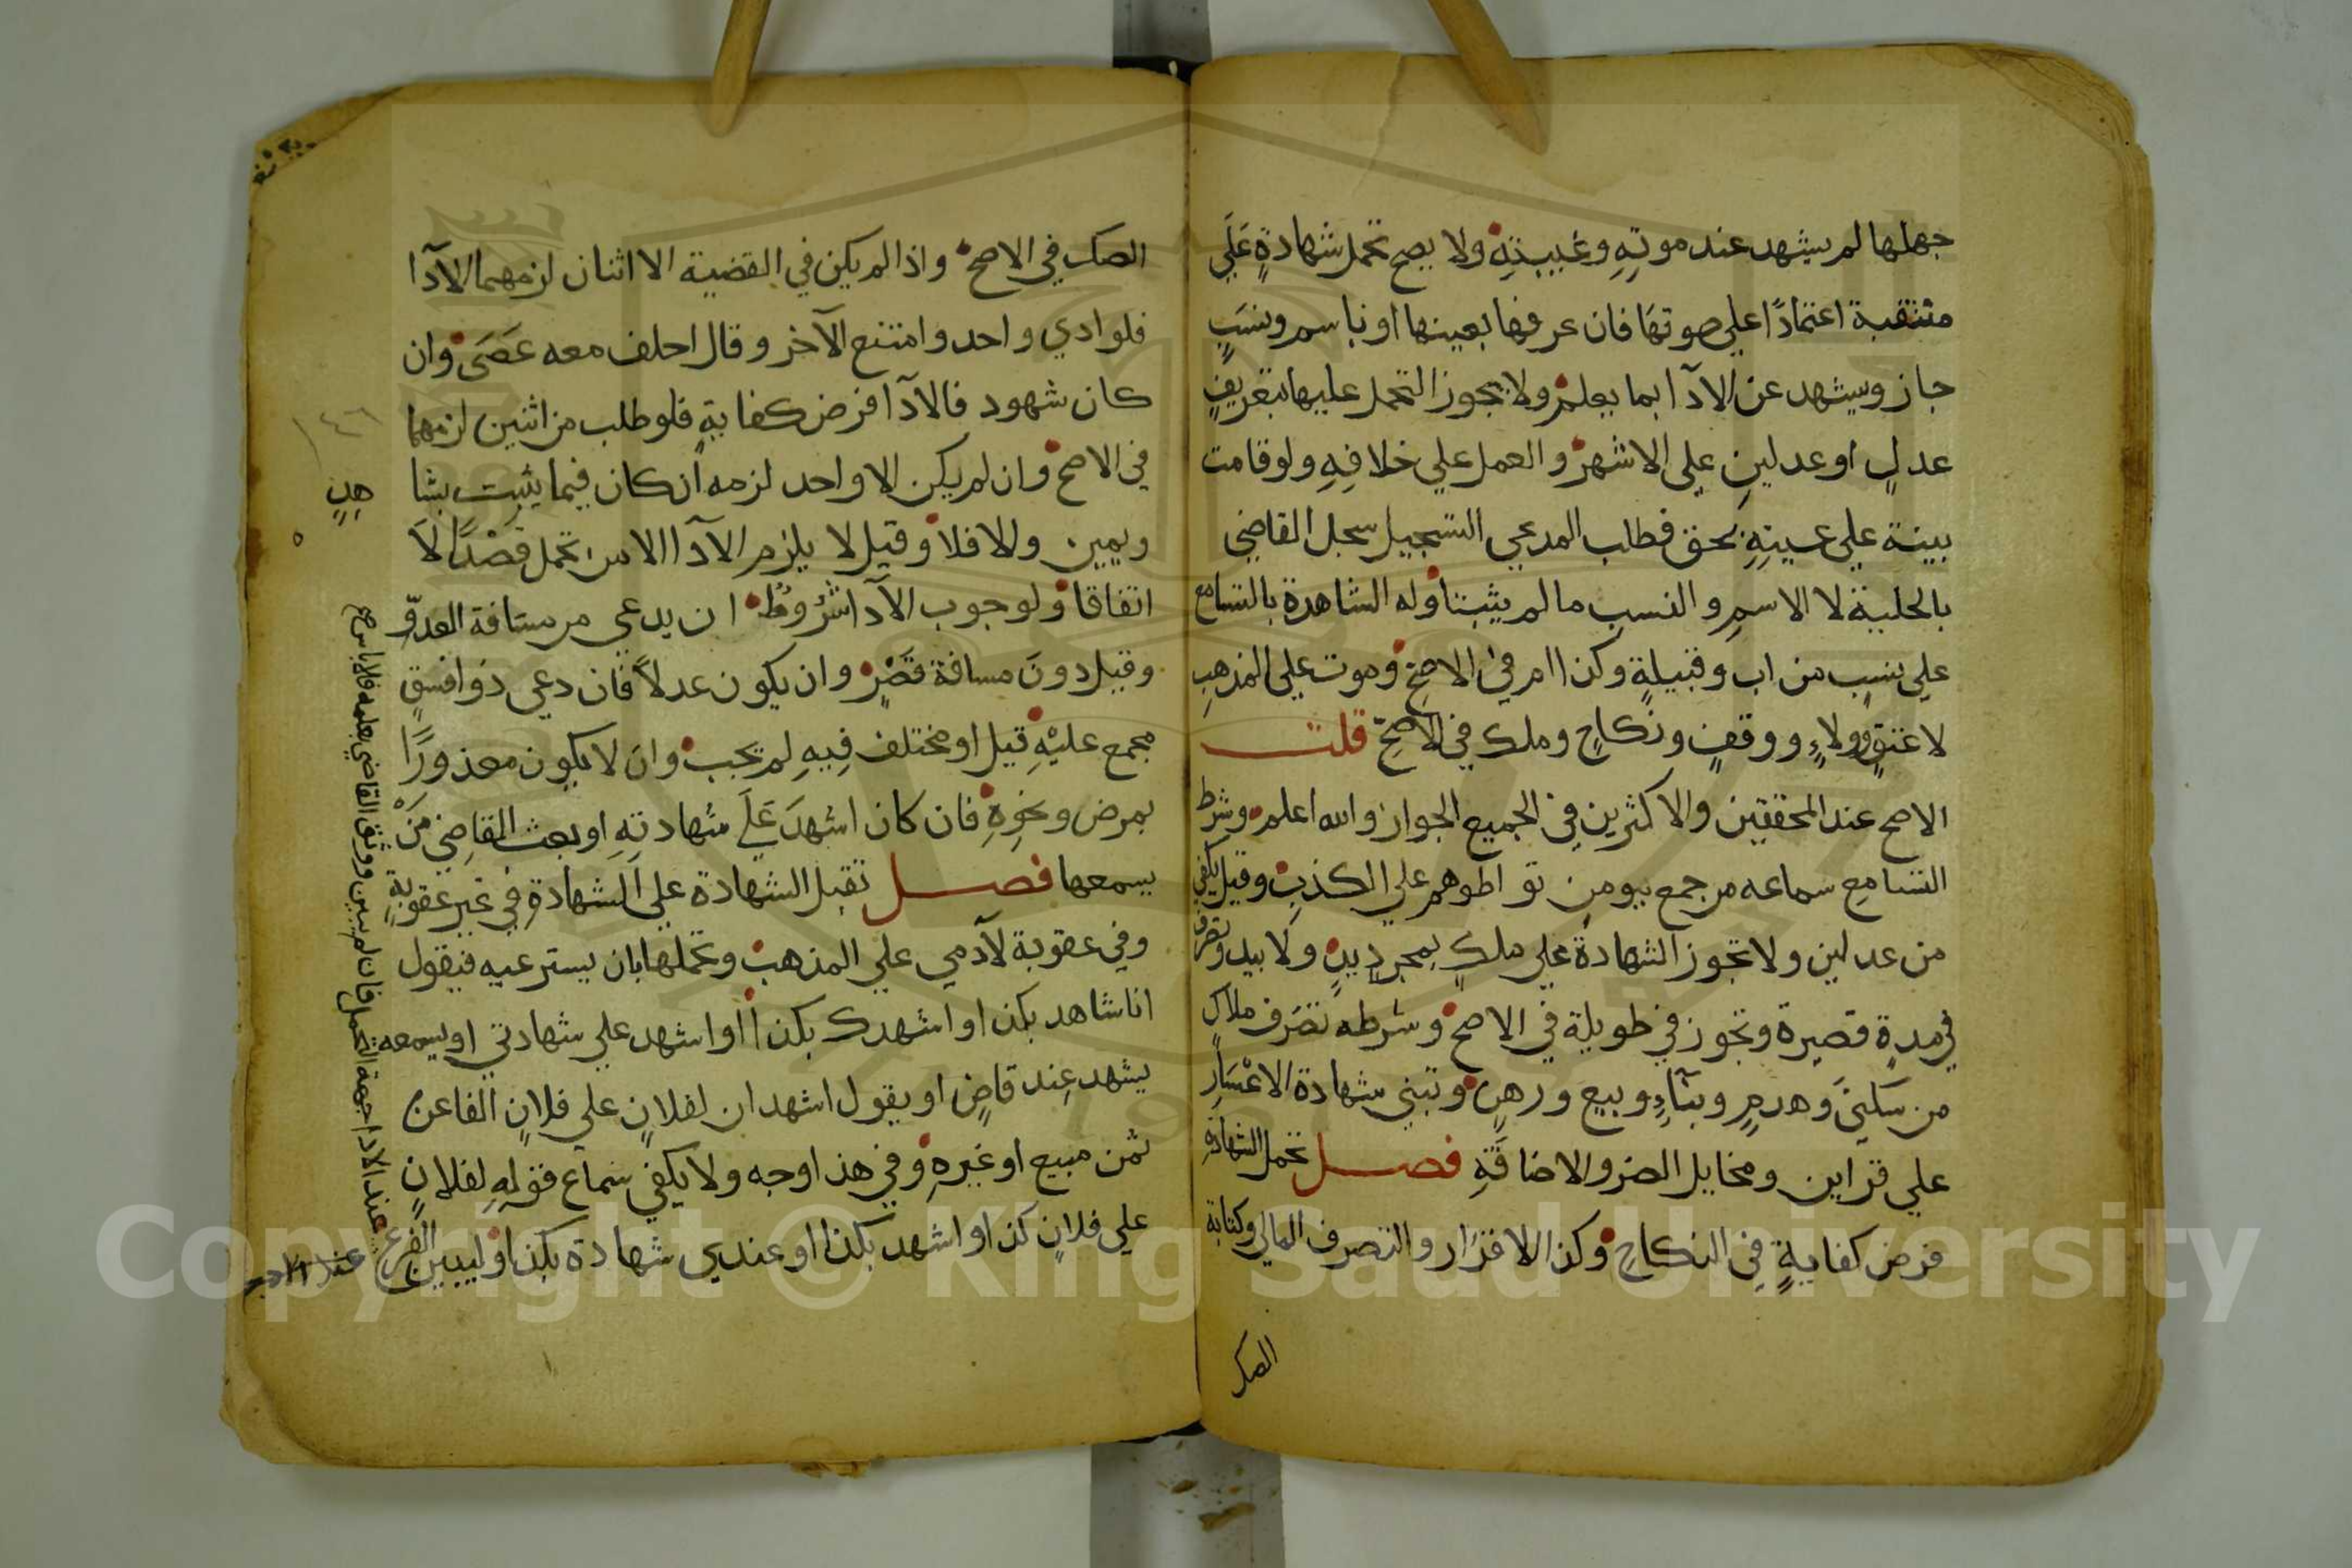 جهلها لم يشهد عند موتِهِ وغيبتِهِ ولا يصح تحمل شهادةٍ عَلَي
متنقبة اعتمادًا علي صوتها فان عرفها بعينها او باسم ونسَبٍ
جاز ويشهد عن الآدا بما يعلم ولا يجوز التحمل عليها بتعريفِ
عدلٍ او عدلينِ علي الاشهر والعمل علي خلافِهِ ولو قامت
بينة علي عينِهِ بحق فطلب المدعي التسجيل سجل القاضي
بالحلية لا الاسمِ والنسبِ ما لم يثبتا وله الشاهدة بالتسامع
علي نسبٍ من اب وقبيلةٍ وكذا ام في الاصحِّ وموت علي المذهبِ
لا عتقٍ وولاءٍ ووقفٍ ونكاحٍ وملك في الاصحِّ قلت
الاصح عند المحققين والاكثرين في الجميع الجواز والله اعلم وشرط
التسامع سماعه من جمع يومن تواطوهم علي الكذبِ وقيل يكفي
من عدلين ولا تجوز الشهادة علي ملكٍ بمجردِ يدٍ ولا بيد وتصرف
في مدةٍ قصيرة وتجوز في طويلة في الاصح وشرطه تصَرف ملاك
من سكنَي وهدمٍ وبنآءٍ وبيع ورهنٍ وتبني شهادة الاعْسَارِ
علي قراين ومخايل الضر والاضاقَةِ فصل تحمل الشهادَةِ
فرض كفايةٍ في النكاحِ وكذا الاقرَار والتصرف المالي وكتابة
الصك
الصك في الاصح واذا لم يكن في القضية الا اثنان لزمهما الآدا
فلو ادي واحد وامتنع الآخر وقال احلف معه عَصَي وان
كان شهود فالآدا فرض كفايةٍ فلو طلب من اثنين لزمهما
في الاصح وان لم يكن الا واحد لزمه ان كان فيما يثبت بشا
هدٍ
ويمين والا فلا وقيل لا يلزم الآدا الا من تحمل قصْدًا لَا
اتفاقا ولوجوب الآدا شرُوط ان يدعي من مسافة العدوّ
وقيل دونَ مسافة قصْرٍ وان يكون عدلاً فان دعي ذوا فسقٍ
مجمع عليْهِ قيل او مختلف فِيهِ لم تجب وان لا يكون معذورًا
بمرض ونحوِهِ فان كان اشهدَ عَلَي شهادتِهِ او بعث القاضِي مَنْ
يسمعها فصل تقبل الشهادة علي الشهادةِ في غير عقوبةٍ
وفي عقوبة لآدمي علي المذهب وتحملها بان يسترعيه فيقول
انا شاهد بكذا او اشهدك بكذا او اشهد علي شهادتي او يسمعه
يشهد عِند قاضٍ او يقول اشهد ان لفلانٍ علي فلانٍ الفا عن
ثمن مبيع او غيرِهِ وفي هذا وجه ولا يكفي سماع قولِهِ لفلانٍ
علي فلانٍ كذا او اشهد بكذا او عندي شهادة بكذا وليبين الفرع
عند الادا جهة التحمل فان لم يبين ووثق القاضي بعلمه فلا باس صح